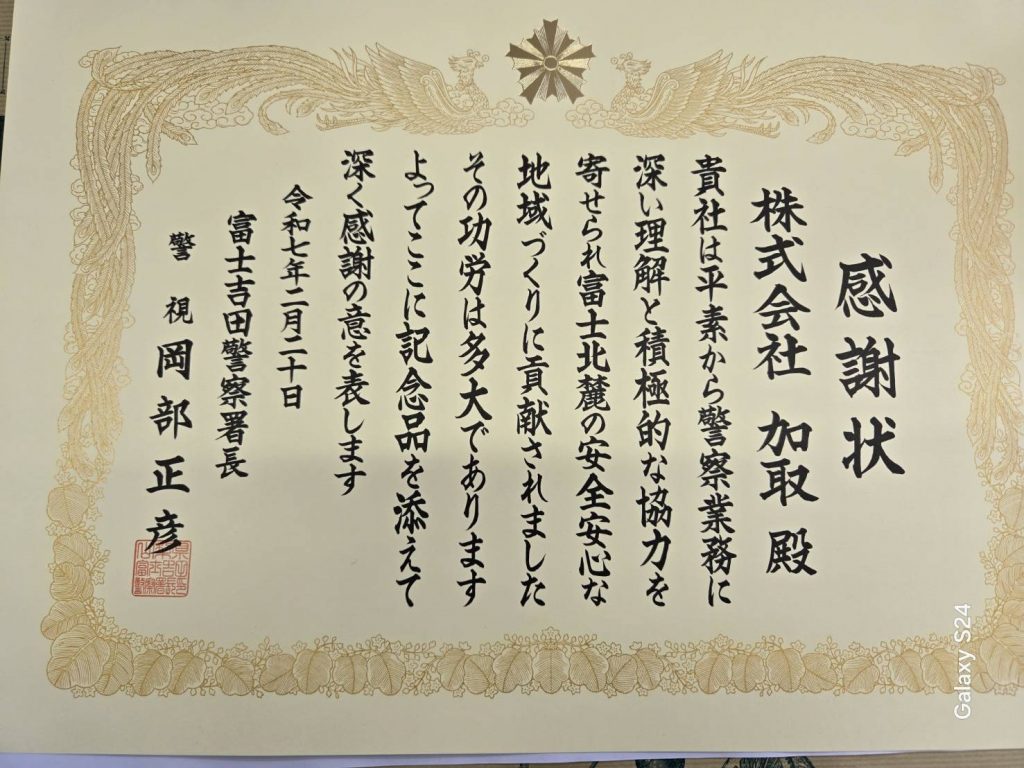 感謝状
株式会社 加取 殿
貴社は平素から警察業務に
深い理解と積極的な協力を
寄せられ富士北麓の安全安心な
地域づくりに貢献されました
その功労は多大であります
よってここに記念品を添えて
深く感謝の意を表します
令和七年二月二十日
富士吉田警察署長
警視 岡部正彦
Galaxy S24